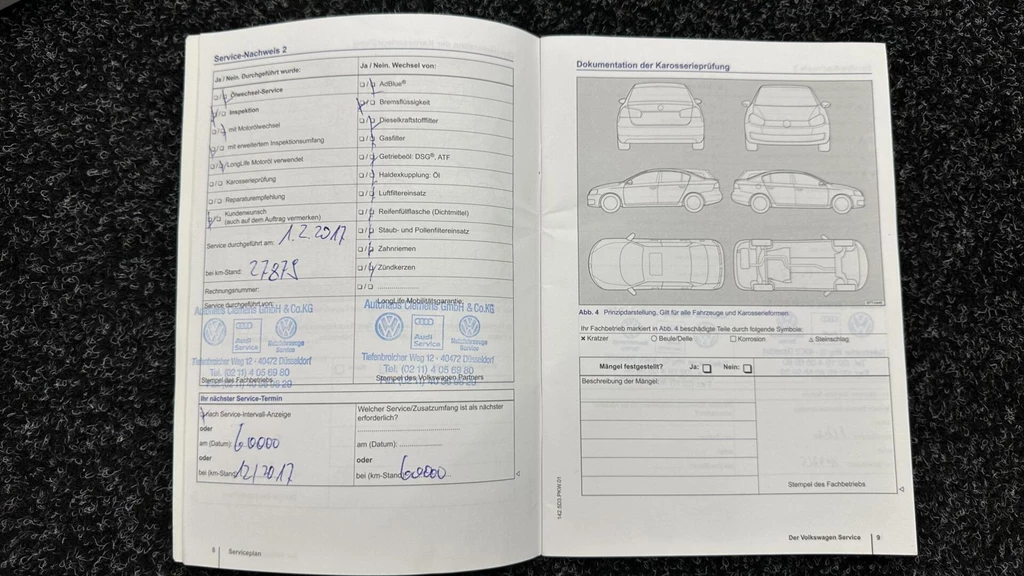 Service-Nachweis 2
Ja / Nein. Durchgeführt wurde:
Ölwechsel-Service
Inspektion
mit Motorölwechsel
mit erweitertem Inspektionsumfang
LongLife Motoröl verwendet
Karosserieprüfung
Reparaturempfehlung
Kundenwunsch
(auch auf dem Auftrag vermerken)
Service durchgeführt am: 1.2.2017
bei km-Stand: 27879
Rechnungsnummer:
Service durchgeführt von:
Autohaus Clemens GmbH & Co.KG
Audi
Service
Nutzfahrzeuge
Service
Tiefenbroicher Weg 12 - 40472 Düsseldorf
Tel. (02 11) 4 05 69 80
Stempel des Fachbetriebs
Ja / Nein. Wechsel von:
AdBlue®
Bremsflüssigkeit
Dieselkraftstofffilter
Gasfilter
Getriebeöl: DSG®, ATF
Haldexkupplung: Öl
Luftfiltereinsatz
Reifenfüllflasche (Dichtmittel)
Staub- und Pollenfiltereinsatz
Zahnriemen
Zündkerzen
LongLife Mobilitätsgarantie
Autohaus Clemens GmbH & Co.KG
Audi
Service
Nutzfahrzeuge
Service
Tiefenbroicher Weg 12 - 40472 Düsseldorf
Tel. (02 11) 4 05 69 80
Stempel des Volkswagen Partners
Ihr nächster Service-Termin
nach Service-Intervall-Anzeige
oder
am (Datum): 60000
oder
bei (km-Stand) 12/2017
Welcher Service/Zusatzumfang ist als nächster
erforderlich?
am (Datum):
oder
bei (km-Stand) 60000
8 Serviceplan
Dokumentation der Karosserieprüfung
Abb. 4 Prinzipdarstellung, Gilt für alle Fahrzeuge und Karosserieformen
Ihr Fachbetrieb markiert in Abb. 4 beschädigte Teile durch folgende Symbole:
x Kratzer O Beule/Delle □ Korrosion △ Steinschlag
Mängel festgestellt? Ja: Nein:
Beschreibung der Mängel:
Stempel des Fachbetriebs
Der Volkswagen Service 9